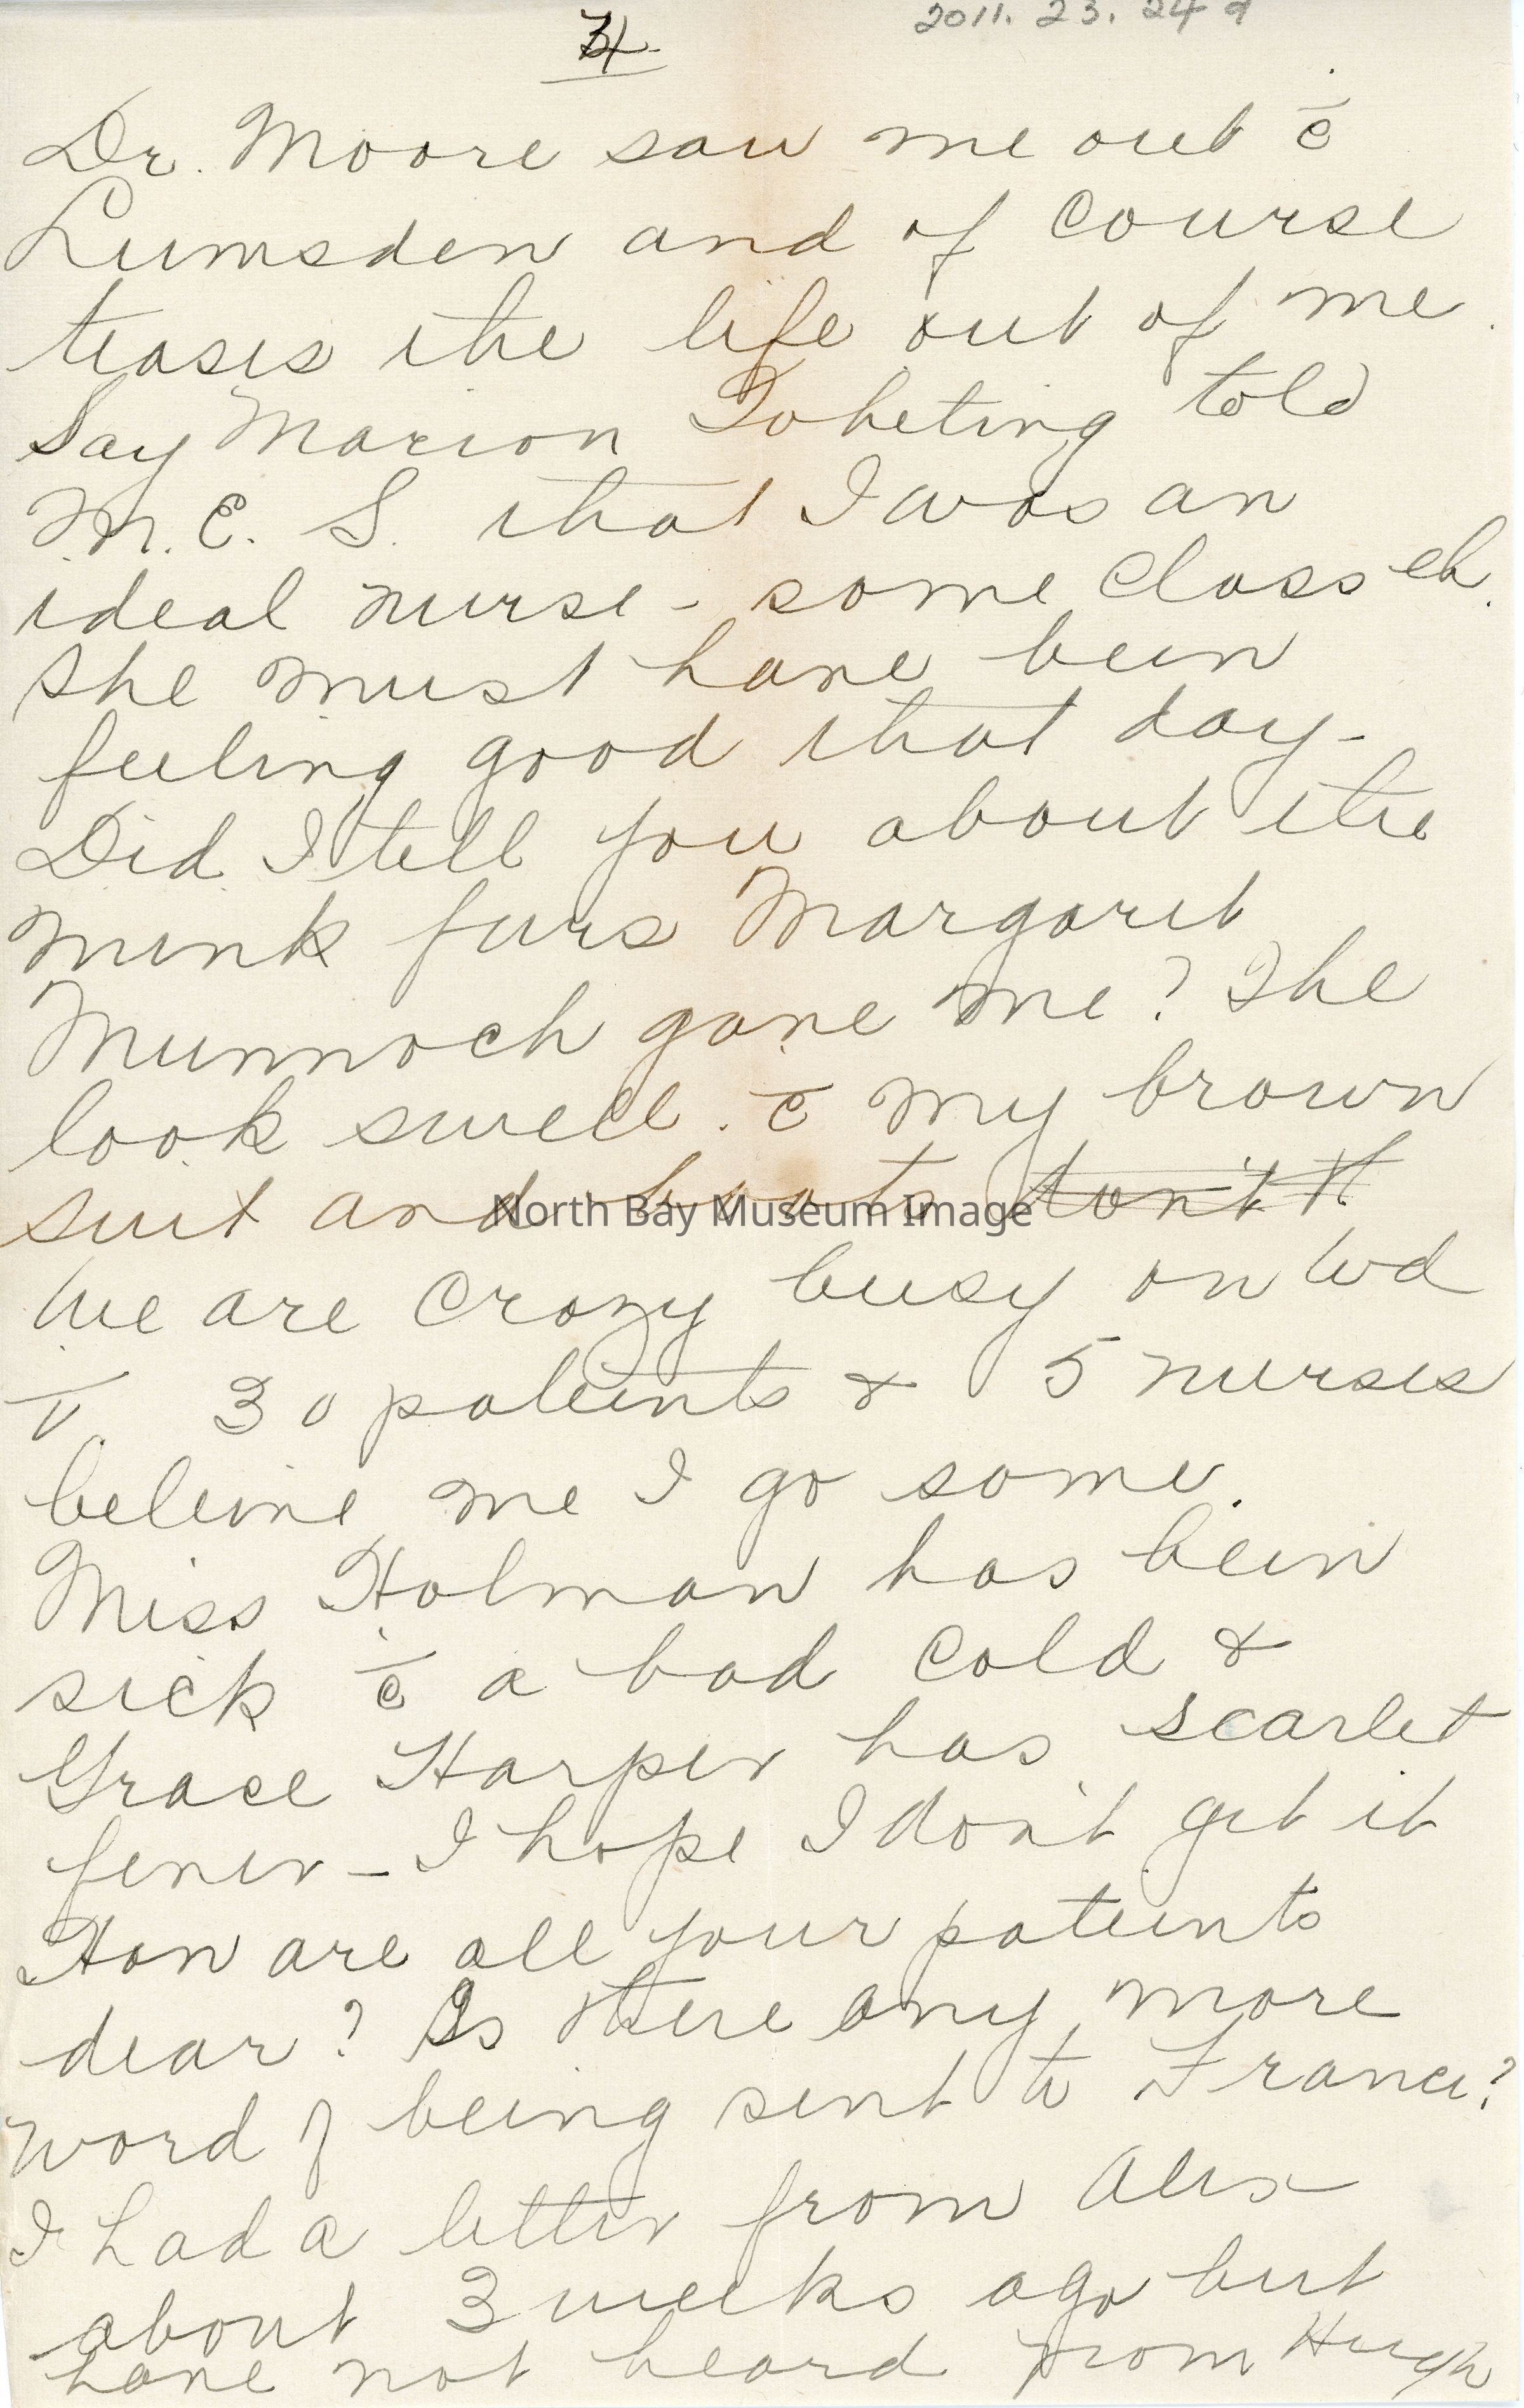 4
2011. 23. 24 9
Dr. Moore saw me out c̄
Lumsden and of course
teases the life out of me.
Say Marion told
M. E. S. that I was an
ideal nurse - some class eh.
She must have been
feeling good that day -
Did I tell you about the
mink furs Margaret
Munnoch gave me? The
look swell. c̄ my brown
suit and boots
We are crazy busy on Wd
V 30 patients & 5 nurses
believe me I go some.
Miss Holman has been
sick c̄ a bad cold &
Grace Harper has scarlet
fever - I hope I don't get it
How are all your patients
dear? Is there any more
word of being sent to France?
I had a letter from Alex
about 3 weeks ago but
have not heard from Hugh
North Bay Museum Image